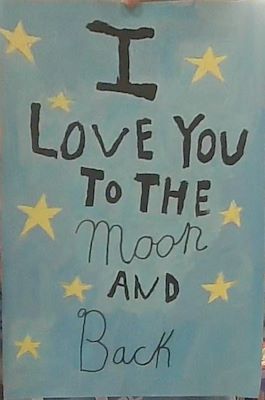 I
LOVE YOU
TO THE
Moon
AND
Back